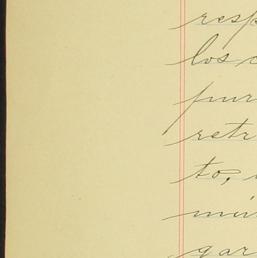 resp
los c
pur
retr
to,
mu
gar